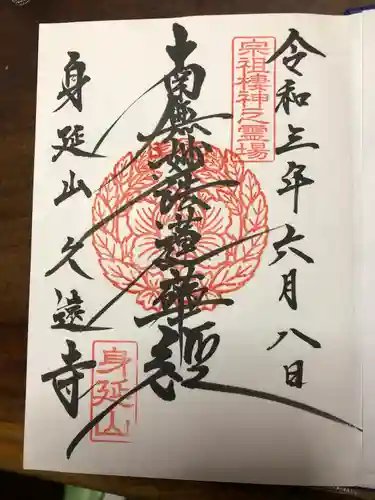 令和三年六月八日
宗祖棲神之霊場
南無妙法蓮華経
身延山久遠寺
身延山